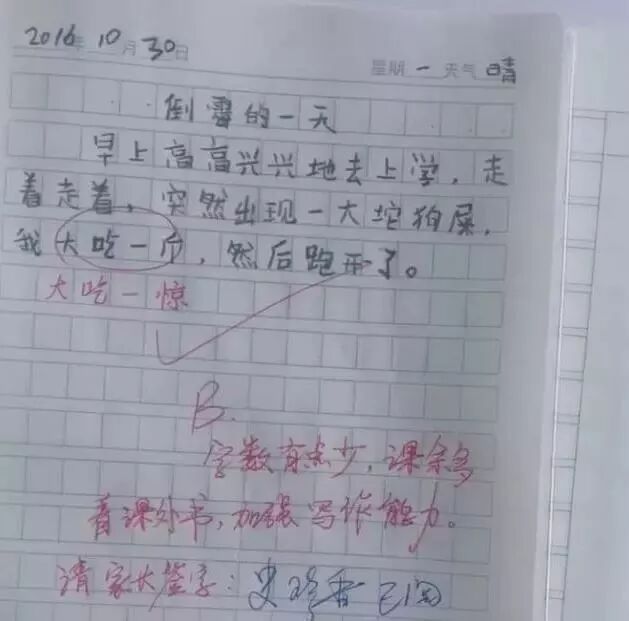 2016年10月30日
星期一 天气 晴
倒霉的一天
早上高高兴兴地去上学，走
着走着，突然出现一大坨狗屎，
我大吃一斤，然后跑开了。
大吃一惊
B.
字数有点少，课余多
看课外书，加强写作能力。
请家长签字：史珍香 已阅